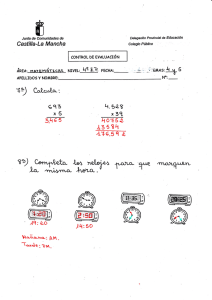 Junta de Comunidades de
Castilla-La Mancha
Delegación Provincial de Educación
Colegio Público
CONTROL DE EVALUACIÓN
ÁREA: MATEMÁTICAS NIVEL: 4º EP FECHA:
APELLIDOS Y NOMBRE: Nº:
7º) Calcula:
693 4.528
x 5 x 39
3465 40752
13584
176592
8º) Completa los relojes para que marquen
la misma hora.
11:35
7:20 2:50
19:20 14:50
Mañana: AM.
Tarde: PM.